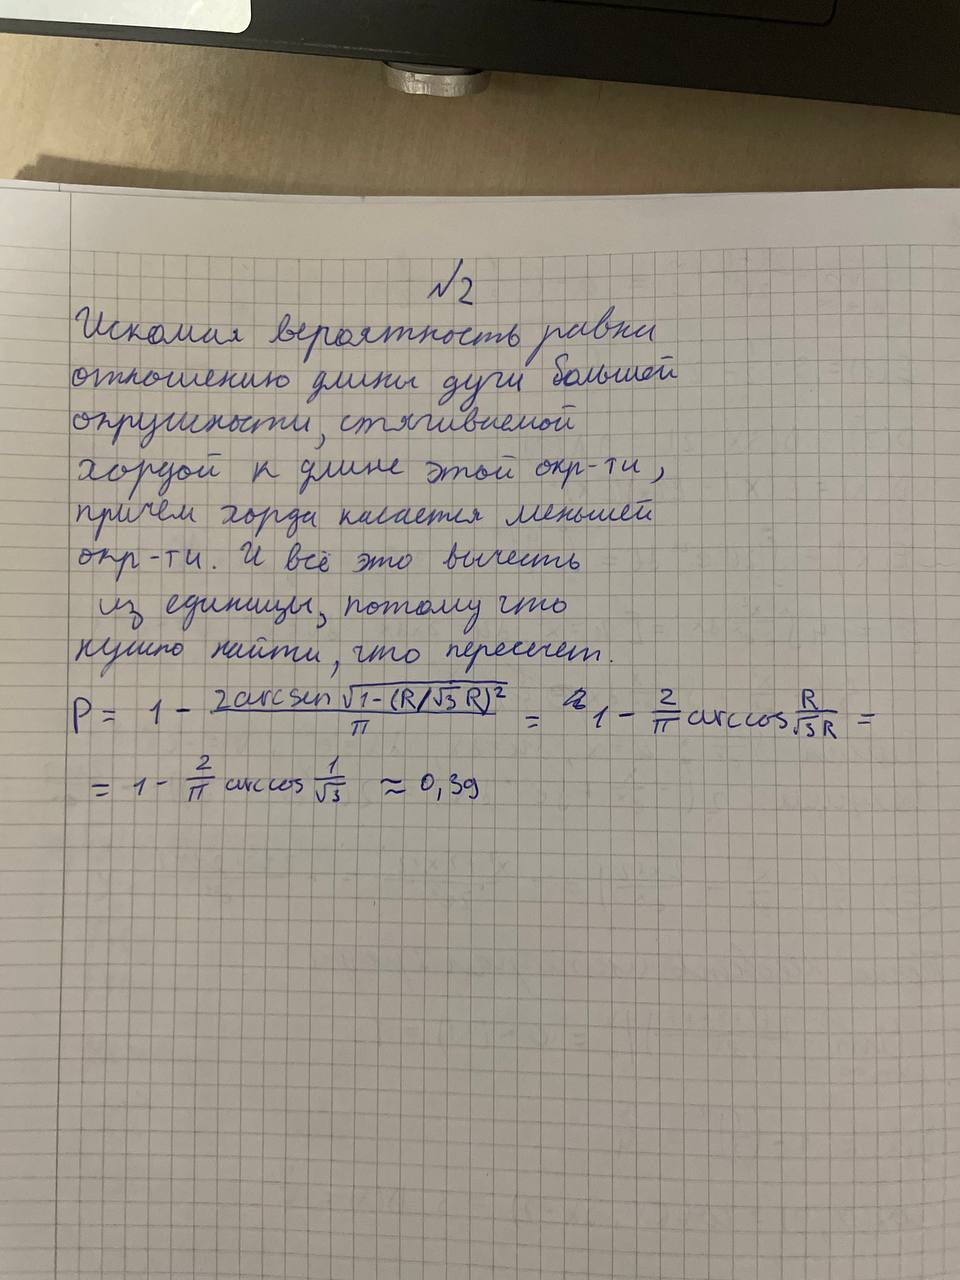 №2
Искомая вероятность равна
отношению длины дуги большей
окружности, стягиваемой
хордой к длине этой окр-ти,
причём хорда касается меньшей
окр-ти. И всё это вычесть
из единицы, потому что
нужно найти, что пересечет.
P = 1 - 2arcsin √(1-(R/√3R)²) / π = 1 - 2/π arccos R/√3R =
= 1 - 2/π arccos 1/√3 ≈ 0,39